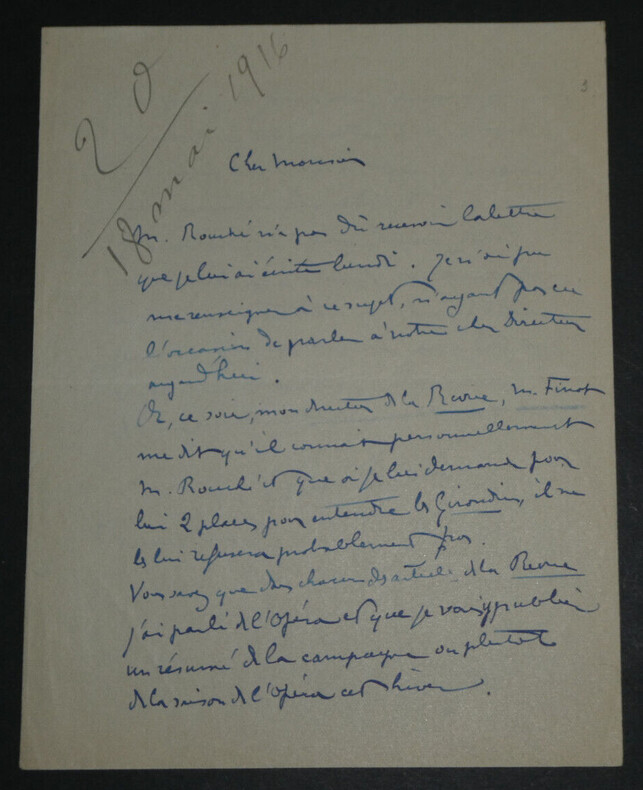 20
18 mai 1916
3
Cher Monsieur
M. Rouché n'a pas dû recevoir la lettre
que je lui ai écrite lundi. Je n'ai pu
me renseigner à ce sujet, n'ayant pas eu
l'occasion de parler à notre cher Directeur
aujourd'hui.
Or, ce soir, mon directeur de la Revue, M. Finot
me dit qu'il connait personnellement
M. Rouché et que si je lui demande pour
lui 2 places pour entendre les Girondins, il ne
les lui refusera probablement pas.
Vous savez que dans chacun des articles de la Revue
j'ai parlé de l'Opéra et que je vais y publier
un résumé de la campagne ou plutot
de la saison de l'Opéra cet hiver.